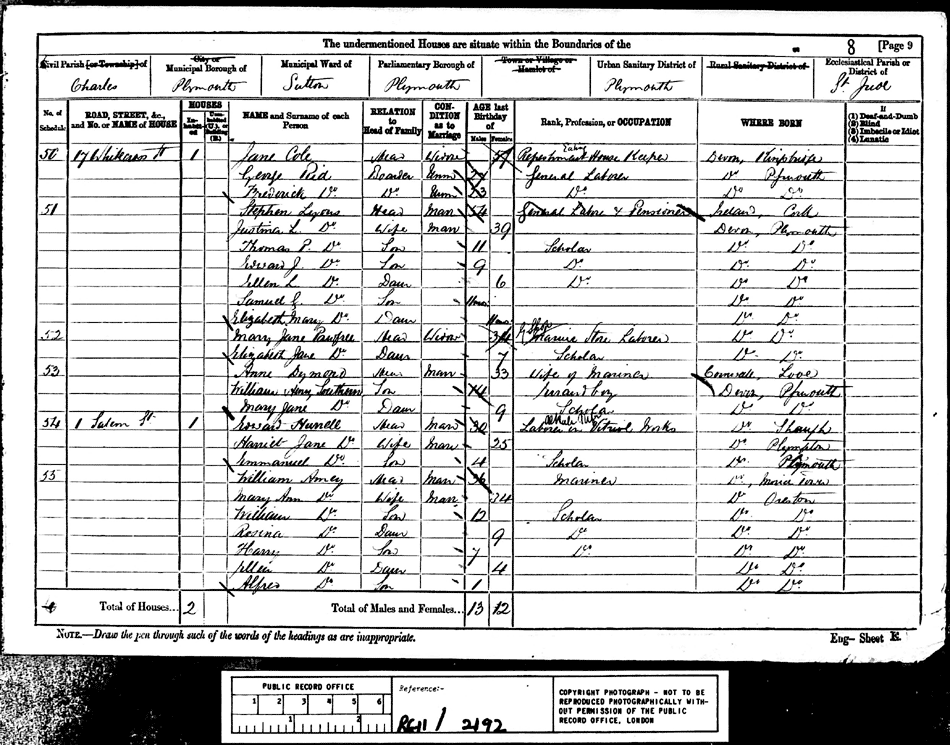 The undermentioned Houses are situate within the Boundaries of the 8 [Page 9
Civil Parish [or Township] of City or Municipal Borough of Municipal Ward of Parliamentary Borough of Town or Village or Hamlet of Urban Sanitary District of Rural Sanitary District of Ecclesiastical Parish or District of
Charles Plymouth Sutton Plymouth Plymouth St Jude
No. of Schedule ROAD, STREET, &c., and No. or NAME of HOUSE HOUSES Inhabited Uninhabited (U.), or Building (B.) NAME and Surname of each Person RELATION to Head of Family CONDITION as to Marriage AGE last Birthday of Males Females Rank, Profession, or OCCUPATION WHERE BORN If (1) Deaf-and-Dumb (2) Blind (3) Imbecile or Idiot (4) Lunatic
50 17 St 1 Jane Cole Head Widow Eating House Keeper Devon, Kingsbridge
George Boarder Unm General Laborer Do Plymouth
Frederick Do Do Unm 23 Do Do Do
51 Stephen Lyons Head Mar 54 General Labore & Pensioner Ireland, Cork
Justina L. Do Wife Mar 39 Devon, Plymouth
Thomas P. Do Son 11 Scholar Do Do
Edward J. Do Son 9 Do Do Do
Ellen L. Do Daur 6 Do Do Do
Samuel Do Son Do Do
Elizabeth Mary Do Daur Do Do
52 Mary Jane Head Widow Marine Store Laborer Do Do
Elizabeth Jane Do Daur 7 Scholar Do Do
53 Anne Dymond Head Mar 33 Wife of Mariner Cornwall, Looe
William Son 14 Errand boy Devon, Plymouth
Mary Jane Do Daur 9 Scholar Do Do
54 1 Salem St 1 Edward Head Mar 30 Laborer in Works Do Shaugh
Harriet Jane Do Wife Mar 25 Do Plympton
Emmanuel Do Son 4 Scholar Do Plymouth
55 William Amey Head Mar 36 Mariner Do, Morice Town
Mary Ann Do Wife Mar 34 Do Oreston
William Do Son 12 Scholar Do Do
Rosina Do Daur 9 Do Do Do
Harry Do Son 7 Do Do Do
Ellen Do Daur 4 Do Do
Alfred Do Son 1 Do Do
Total of Houses... 2 Total of Males and Females... 13 12
NOTE.—Draw the pen through such of the words of the headings as are inappropriate. Eng- Sheet E.
PUBLIC RECORD OFFICE
1 2 3 4 5 6
1 2
Reference:-
RG11 / 2192
COPYRIGHT PHOTOGRAPH - NOT TO BE
REPRODUCED PHOTOGRAPHICALLY WITH-
OUT PERMISSION OF THE PUBLIC
RECORD OFFICE, LONDON